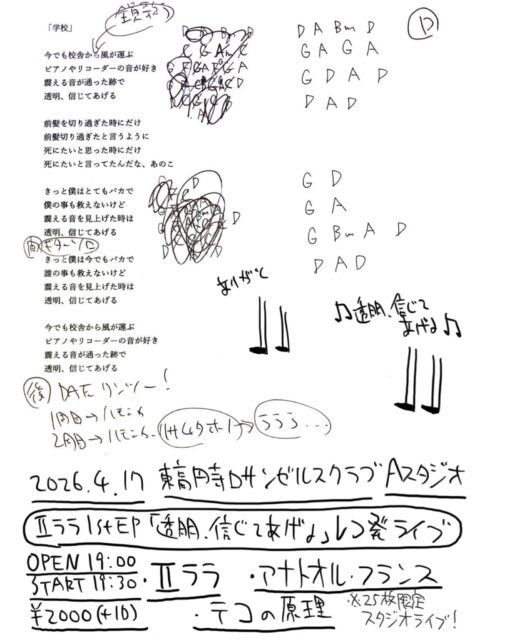 「学校」
今でも校舎から風が運ぶ
ピアノやリコーダーの音が好き
震える音が通った跡で
透明、信じてあげる
前髪を切り過ぎた時にだけ
前髪切り過ぎたと言うように
死にたいと思った時にだけ
死にたいと言ってたんだな、あのこ
きっと僕はとてもバカで
僕の事も救えないけど
震える音を見上げた時は
透明、信じてあげる
きっと僕は今でもバカで
誰の事も救えないけど
震える音を見上げた時は
透明、信じてあげる
今でも校舎から風が運ぶ
ピアノやリコーダーの音が好き
震える音が通った跡で
透明、信じてあげる
D A Bm D
G A G A
G D A D
D A D
G D
G A
G Bm A D
D A D
D
ありがと
♫透明、信じてあげる♫
後 DAE リンツー!
1周目→ハモニカ
2周目→ハモニカ
ららら...
2026.4.17 東高円寺ロサンゼルスクラブ Aスタジオ
II ララ 1st EP「透明、信じてあげる」レコ発ライブ
OPEN 19:00
START 19:30 ・II ララ ・アナトオル・フランス
¥2000(+1D) ・テコの原理 ※25枚限定
スタジオライブ!